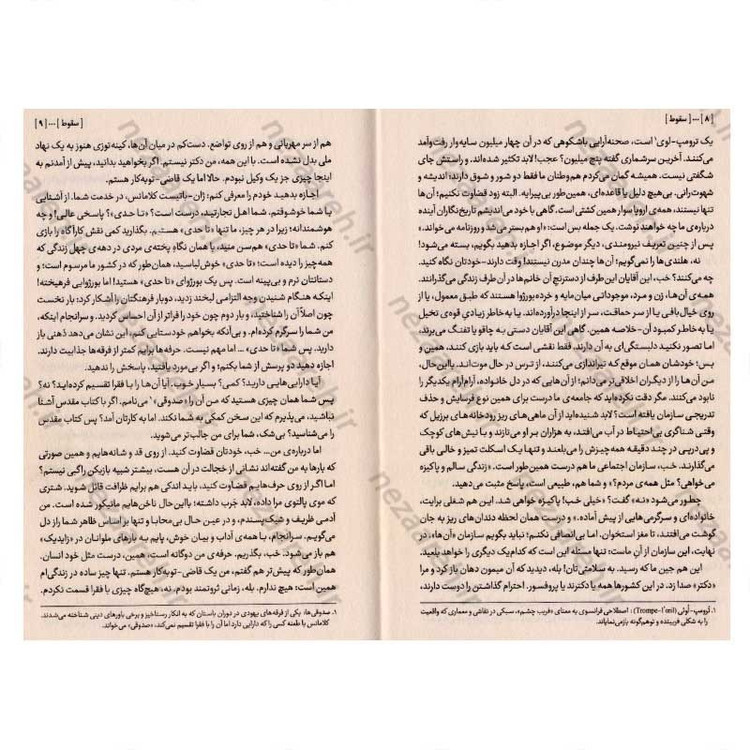 [ ۸ ] ... [ سقوط ]
یک ترومپ-لوی۱ است، صحنه‌آرایی باشکوهی که در آن چهار میلیون سایه‌وار رفت‌وآمد
می‌کنند. آخرین سرشماری گفته پنج میلیون؟ عجب! لابد تکثیر شده‌اند. و راستش جای
شگفتی نیست. همیشه گمان می‌کردم هم‌وطنان ما فقط دو شور و شوق دارند: اندیشه و
شهوت‌رانی. بی‌هیچ دلیل یا قاعده‌ای، همین‌طور بی‌پیرایه. البته زود قضاوت نکنیم؛ آن‌ها
تنها نیستند، همه‌ی اروپا سوار همین کشتی است. گاهی با خود می‌اندیشم تاریخ‌نگاران آینده
درباره‌ی ما چه خواهند نوشت. یک جمله بس است: «او هم بستر می‌شد و روزنامه می‌خواند.»
پس از چنین تعریف نیرومندی، دیگر موضوع، اگر اجازه بدهید بگویم، بسته می‌شود!
نه، هلندی‌ها را نمی‌گویم؛ آن‌ها چندان مدرن نیستند! وقت دارند-خودتان نگاه کنید.
چه می‌کنند؟ خب، این آقایان این طرف از دسترنج آن خانم‌ها در آن طرف زندگی می‌گذرانند.
همه‌ی آن‌ها، زن و مرد، موجوداتی میان‌مایه و خرده‌بورژوا هستند که طبق معمول، یا از
روی خیال‌بافی یا از سر حماقت، سر از اینجا درآورده‌اند. یا به خاطر زیادیِ قوه‌ی تخیل
یا به خاطر کمبود آن-خلاصه همین. گاهی این آقایان دستی به چاقو یا تفنگ می‌برند،
اما تصور نکنید دلبستگی‌ای به آن دارند. فقط نقشی است که باید بازی کنند، همین و
بس؛ خودشان همان موقع که تیراندازی می‌کنند، از ترس در حال موت‌اند. بااین‌حال،
من آن‌ها را از دیگران اخلاقی‌تر می‌دانم؛ از آن‌هایی که در دل خانواده، آرام‌آرام یکدیگر را
نابود می‌کنند. مگر دقت نکرده‌اید که جامعه‌ی ما درست برای همین نوع فرسایش و حذف
تدریجی سازمان یافته است؟ لابد شنیده‌اید از آن ماهی‌های ریز رودخانه‌های برزیل که
وقتی شناگری بی‌احتیاط در آب می‌افتد، به هزاران بر او می‌تازند و با نیش‌های کوچک
و پی‌درپی در چند دقیقه همه‌چیزش را می‌بلعند و تنها یک اسکلت تمیز و خالی باقی
می‌گذارند. خب، سازمان اجتماعی ما هم درست همین‌طور است. «زندگی سالم و پاکیزه
می‌خواهی؟ مثل همه‌ی مردم؟» و شما هم، طبیعی است، پاسخ مثبت می‌دهید.
چطور می‌شود «نه» گفت؟ «خیلی خب! پاکیزه خواهی شد. این هم شغلی برایت،
خانواده‌ای و سرگرمی‌هایی از پیش آماده.» و درست همان لحظه دندان‌های ریز به جان
گوشت می‌افتند، تا مغز استخوان. اما بی‌انصافی نکنیم؛ نباید بگویم سازمان «آن‌ها». در
نهایت، این سازمان از آنِ ماست؛ تنها مسئله این است که کدام‌یک دیگری را خواهد بلعید.
این هم جین ما که رسید. به سلامتی‌تان! بله، دیدید که آن میمون دهان باز کرد و مرا
«دکتر» صدا زد. در این کشورها همه یا دکترند یا پروفسور. احترام گذاشتن را دوست دارند،
۱. تُرومپ-لُوئی (Trompe-l'œil) : اصطلاحی فرانسوی به معنای «فریب چشم»، سبکی در نقاشی و معماری که واقعیت
را به شکلی فریبنده و توهم‌گونه بازمی‌نمایاند.
[ سقوط ] ... [ ۹ ]
هم از سر مهربانی و هم از روی تواضع. دست‌کم در میان آن‌ها، کینه‌توزی هنوز به یک نهاد
ملی بدل نشده است. با این همه، من دکتر نیستم. اگر بخواهید بدانید، پیش از آمدنم به
اینجا چیزی جز یک وکیل نبودم. حالا اما یک قاضی-توبه‌کار هستم.
اجازه بدهید خودم را معرفی کنم: ژان-باتیست کلامانس، در خدمت شما. از آشنایی
با شما خوشوقتم. شما اهل تجارتید، درست است؟ «تا حدی»؟ پاسخی عالی! و چه
هوشمندانه! زیرا در هر چیز، ما تنها «تا حدی» هستیم. بگذارید کمی نقش کارآگاه را بازی
کنم. شما «تا حدی» هم‌سن منید، با همان نگاه پخته‌ی مردی در دهه‌ی چهل زندگی که
همه‌چیز را دیده است؛ «تا حدی» خوش‌لباسید، همان‌طور که در کشور ما مرسوم است؛ و
دستانتان نرم و بی‌پینه است. پس یک بورژوای «تا حدی» هستید! اما بورژوایی فرهیخته!
اینکه هنگام شنیدن وجه التزامی لبخند زدید، دوبار فرهنگتان را آشکار کرد: بار نخست
چون اصلاً آن را شناختید، و بار دوم چون خود را فراتر از آن احساس کردید. و سرانجام اینکه،
من شما را سرگرم کرده‌ام. و بی‌آنکه بخواهم خودستایی کنم، این نشان می‌دهد ذهنی باز
دارید. پس شما «تا حدی» ... اما مهم نیست. حرفه‌ها برایم کمتر از فرقه‌ها جذابیت دارند.
اجازه دهید دو پرسش از شما بکنم؛ و اگر بی‌ادبی یافتید، پاسخش را ندهید.
آیا دارایی‌هایی دارید؟ کمی؟ بسیار خوب. آیا آن‌ها را با فقرا تقسیم کرده‌اید؟ نه؟
پس شما همان چیزی هستید که من آن را «صدوقی۱» می‌نامم. اگر با کتاب مقدس آشنا
نباشید، می‌پذیرم که این سخن کمکی به شما نکند. اما به کارتان آمد؟ پس کتاب مقدس
را می‌شناسید؟ بی‌شک، شما برای من جالب‌تر می‌شوید.
اما درباره‌ی من... خب، خودتان قضاوت کنید. از روی قد و شانه‌هایم و همین صورتی
که بارها به من گفته‌اند نشانی از خجالت در آن هست، بیشتر شبیه بازیکن راگبی نیستم؟
اما اگر از روی حرف‌هایم قضاوت کنید، باید اندکی هم برایم ظرافت قائل شوید. شتری
که موی پالتوی مرا داده، لابد جَرب داشته؛ بااین‌حال ناخن‌هایم مانیکور شده است. من
آدمی ظریف و شیک‌پسندم، و در عین حال بی‌محابا و تنها بر اساس ظاهر شما راز دل
می‌گویم. سرانجام، با همه‌ی آداب و بیان خوش، پایم به بارهای ملوانان در «زایدیک»
هم باز می‌شود. خب، بگذریم. حرفه‌ی من دوگانه است، همین، درست مثل خود انسان.
همان‌طور که پیش‌تر هم گفتم، من یک قاضی-توبه‌کار هستم. تنها چیز ساده در زندگی‌ام
همین است: هیچ ندارم. بله، زمانی ثروتمند بودم. نه، هیچ‌گاه چیزی با فقرا قسمت نکردم.
۱. صدوقی‌ها: یکی از فرقه‌های یهودی در دوران باستان که به انکار رستاخیز و برخی باورهای دینی شناخته می‌شدند.
کلامانس با طعنه کسی را که دارایی دارد اما آن را با فقرا تقسیم نمی‌کند، «صدوقی» می‌خواند.
nezareh.ir